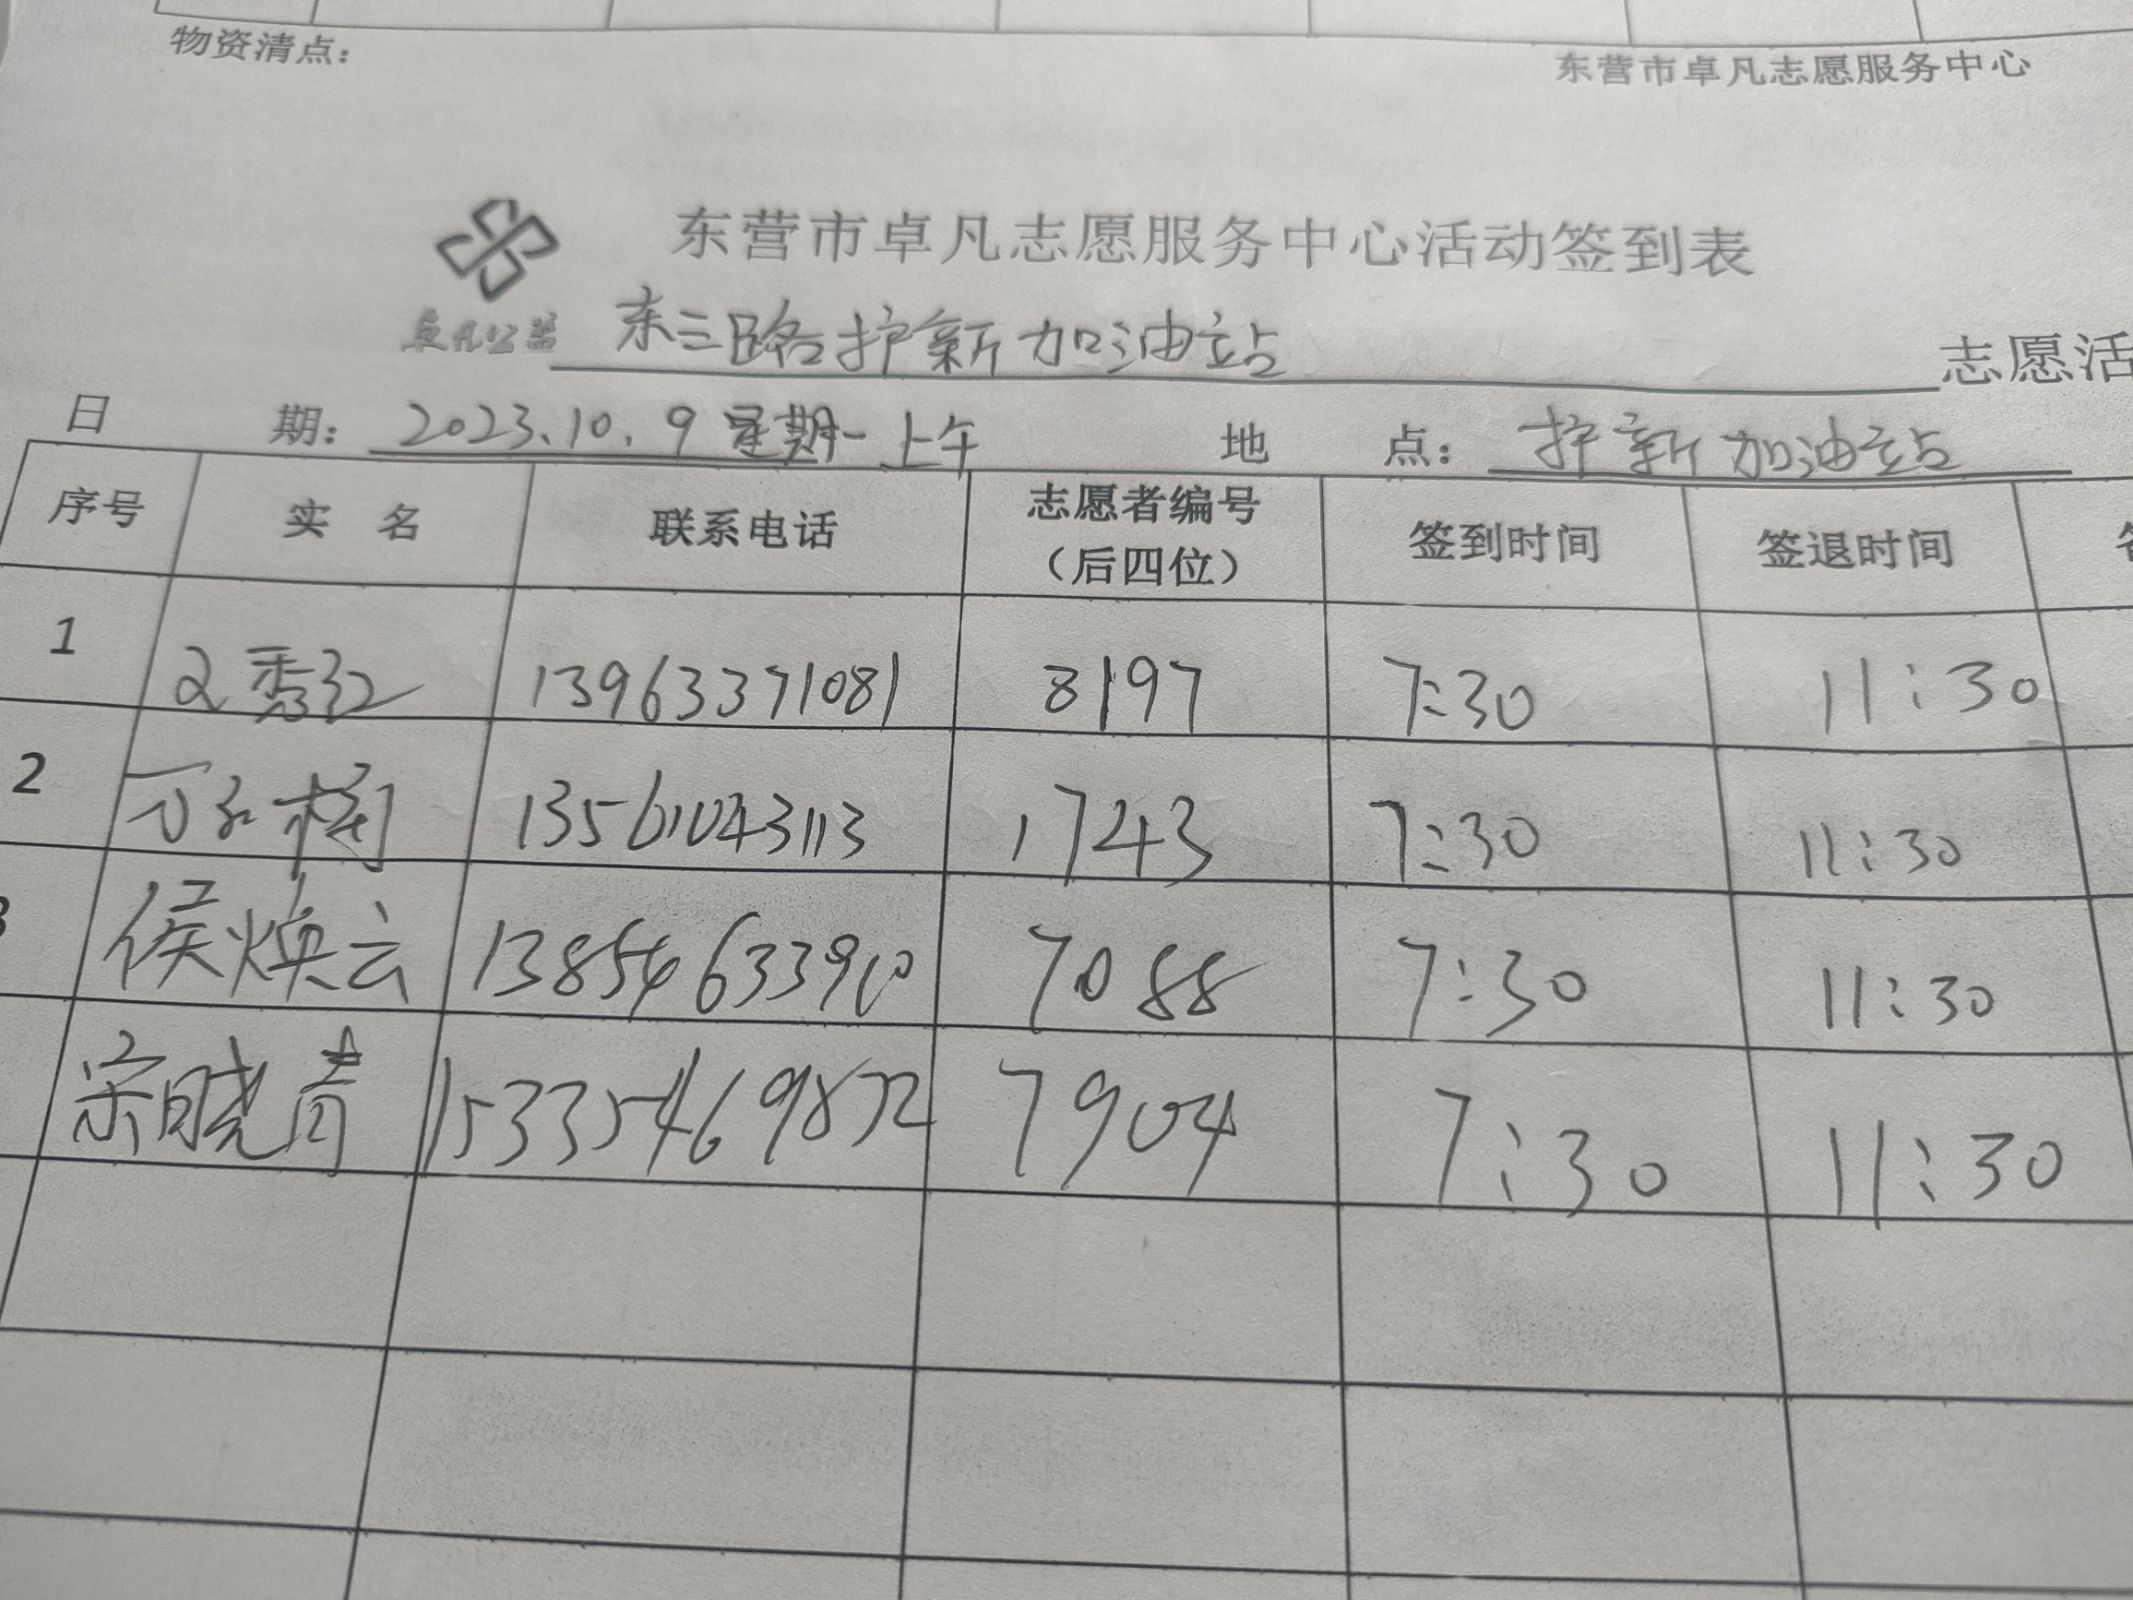 物资清点：
东营市卓凡志愿服务中心
东营市卓凡志愿服务中心活动签到表
卓凡公益 东三路护新加油站 志愿活
日 期： 2023.10.9 星期一上午 地 点： 护新加油站
序号 实 名 联系电话 志愿者编号（后四位） 签到时间 签退时间
1 秀红 13963371081 8197 7:30 11:30
2 13561043113 1743 7:30 11:30
侯焕云 13854633910 7088 7:30 11:30
宋晓青 15335469872 7904 7:30 11:30